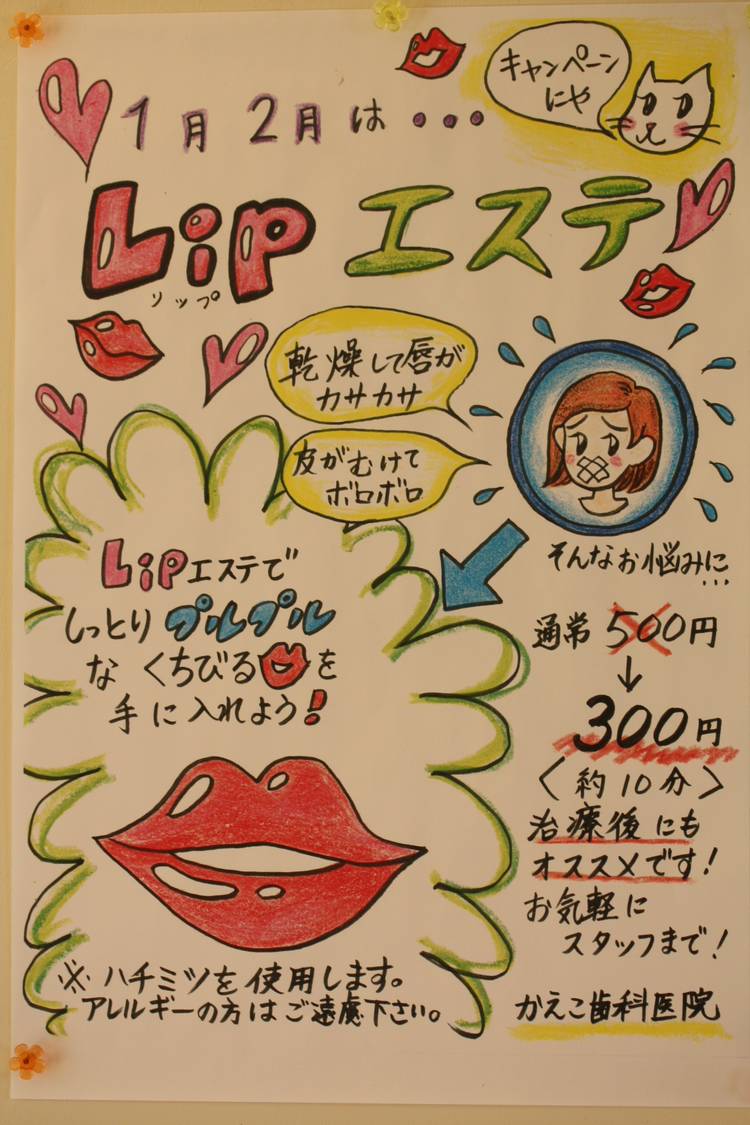 キャンペーン
にゃ
1月 2月 は・・・
Lip エステ
リップ
乾燥して唇が
カサカサ
皮がむけて
ボロボロ
そんなお悩みに…
Lipエステで
しっとり プルプル
な くちびる を
手に入れよう!
通常 500円
↓
300円
〈約10分〉
治療後にも
オススメです!
お気軽に
スタッフまで!
※ ハチミツを使用します。
アレルギーの方はご遠慮下さい。
かえこ歯科医院